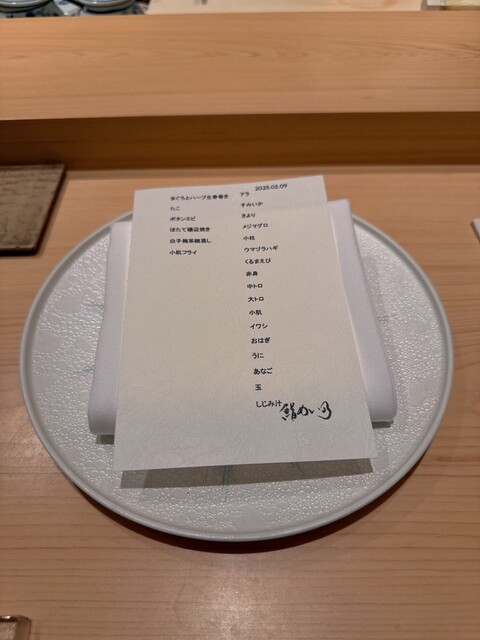 2025.02.09
まぐろとハーブ生春巻き
たこ
ボタンエビ
ほたて磯辺焼き
白子梅茶碗蒸し
小肌フライ
アラ
すみいか
さより
メジマグロ
小柱
ウマヅラハギ
くるまえび
赤身
中トロ
大トロ
小肌
イワシ
おはぎ
うに
あなご
玉
しじみ汁